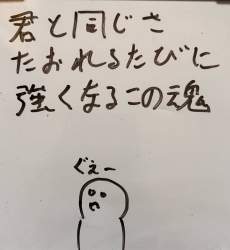 君と同じさ
たおれるたびに
強くなるこの魂
ぐえー